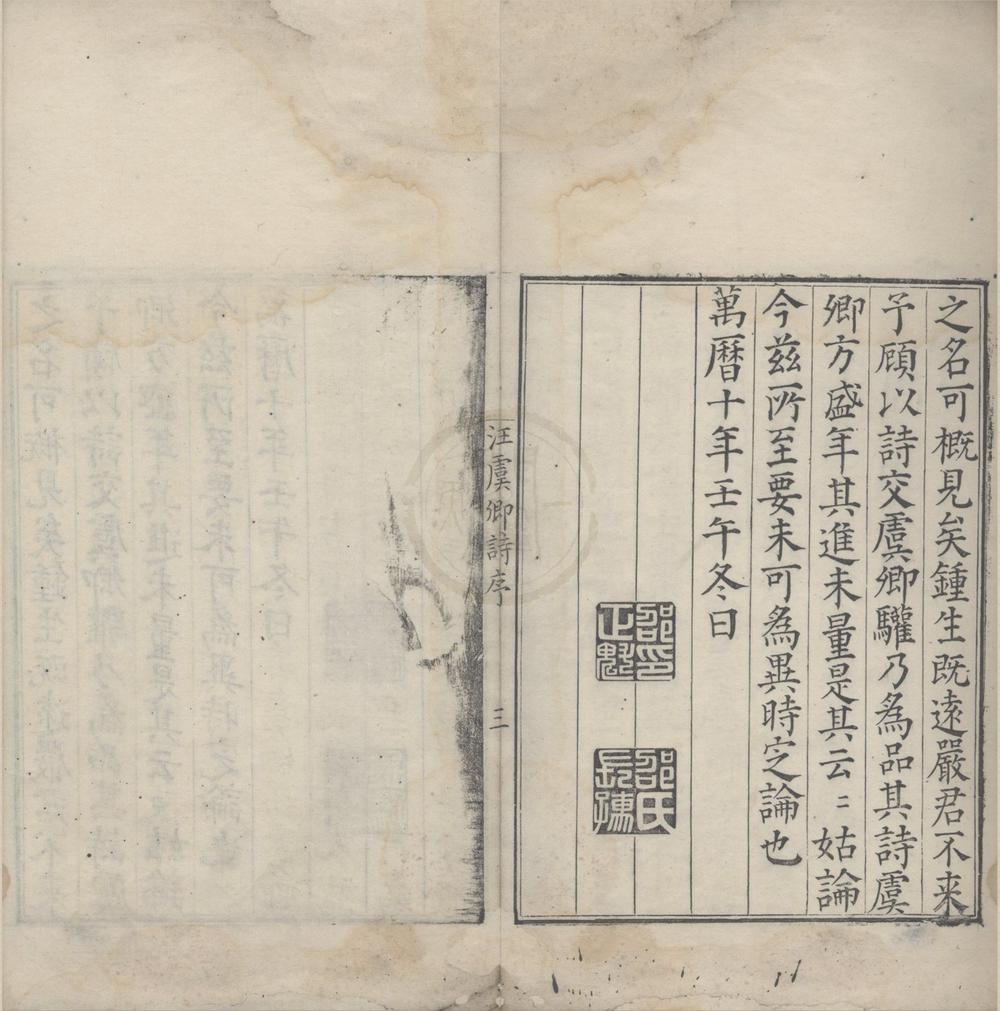 之名可槪見矣鍾生既逺嚴君不来
予顧以詩交虞卿驩乃為品其詩虞
卿方盛年其進未量是其云〻姑論
今兹所至要未可為異時定論也
萬曆十年壬午冬日
邵印正魁
邵氏長孺
汪虞卿詩序
三